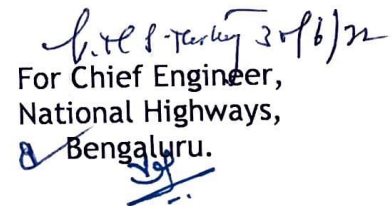 30/6/22
For Chief Engineer,
National Highways,
Bengaluru.